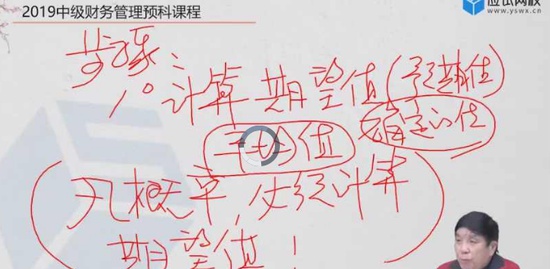 2019中级财务管理预科课程
应试网校
www.yswx.cn
步骤：
1。计算期望值（预期值）
确定的值
平均值
凡概率，必须计算
期望值！